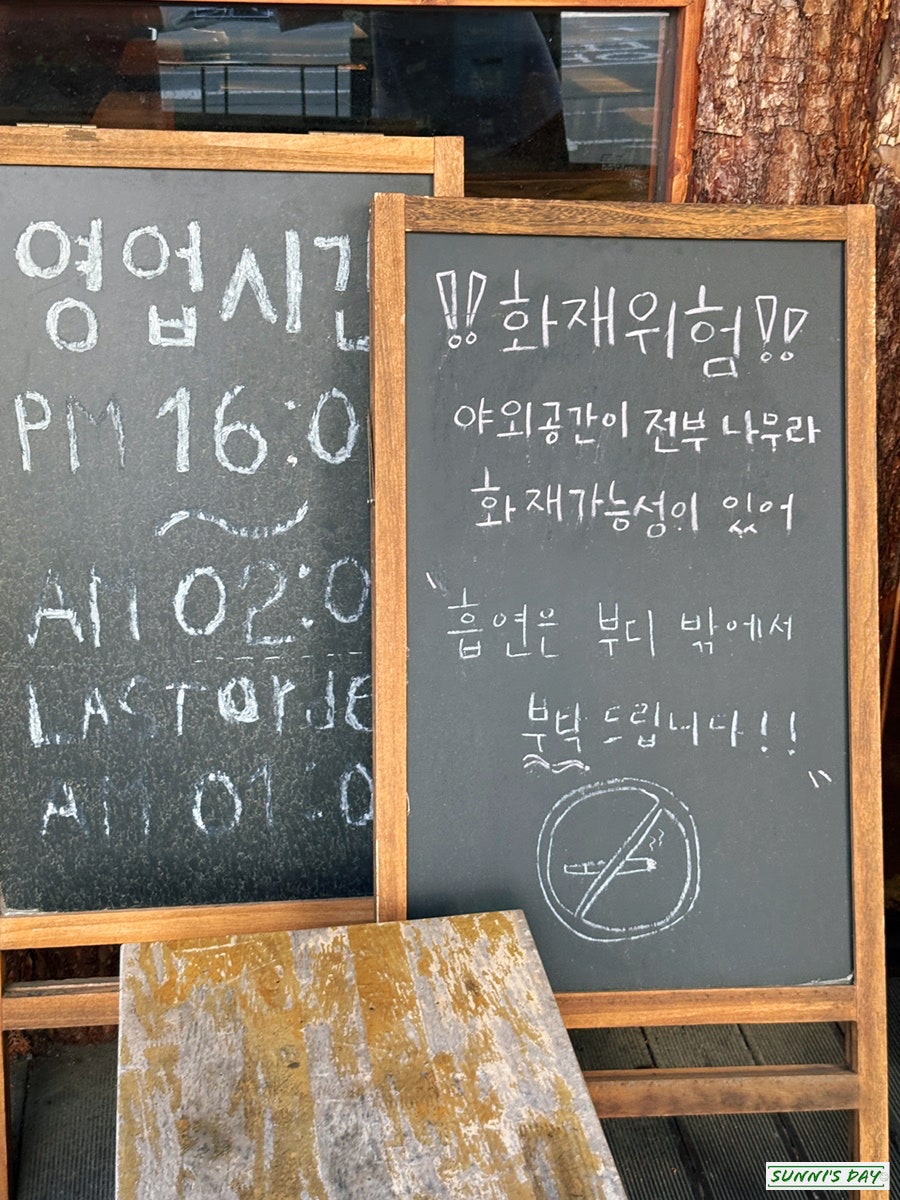 영업시간
PM 16:0
~
AM 02:0
LAST OrdE
AM 01:0
!! 화재위험 !!
야외공간이 전부 나무라
화재가능성이 있어
"흡연은 부디 밖에서
부탁 드립니다!!"
SUNNI'S DAY